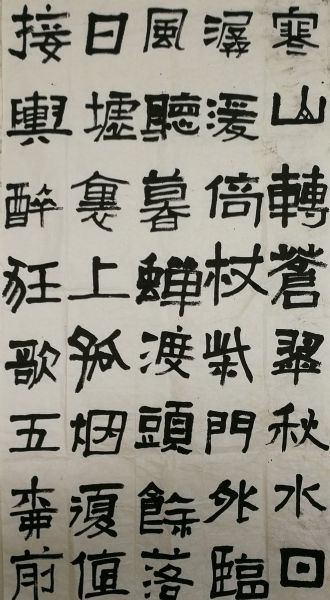 寒山轉蒼翠秋水日
潺湲倚杖柴門外臨
風聽暮蟬渡頭餘落
日墟裏上孤烟復值
接輿醉狂歌五柳前